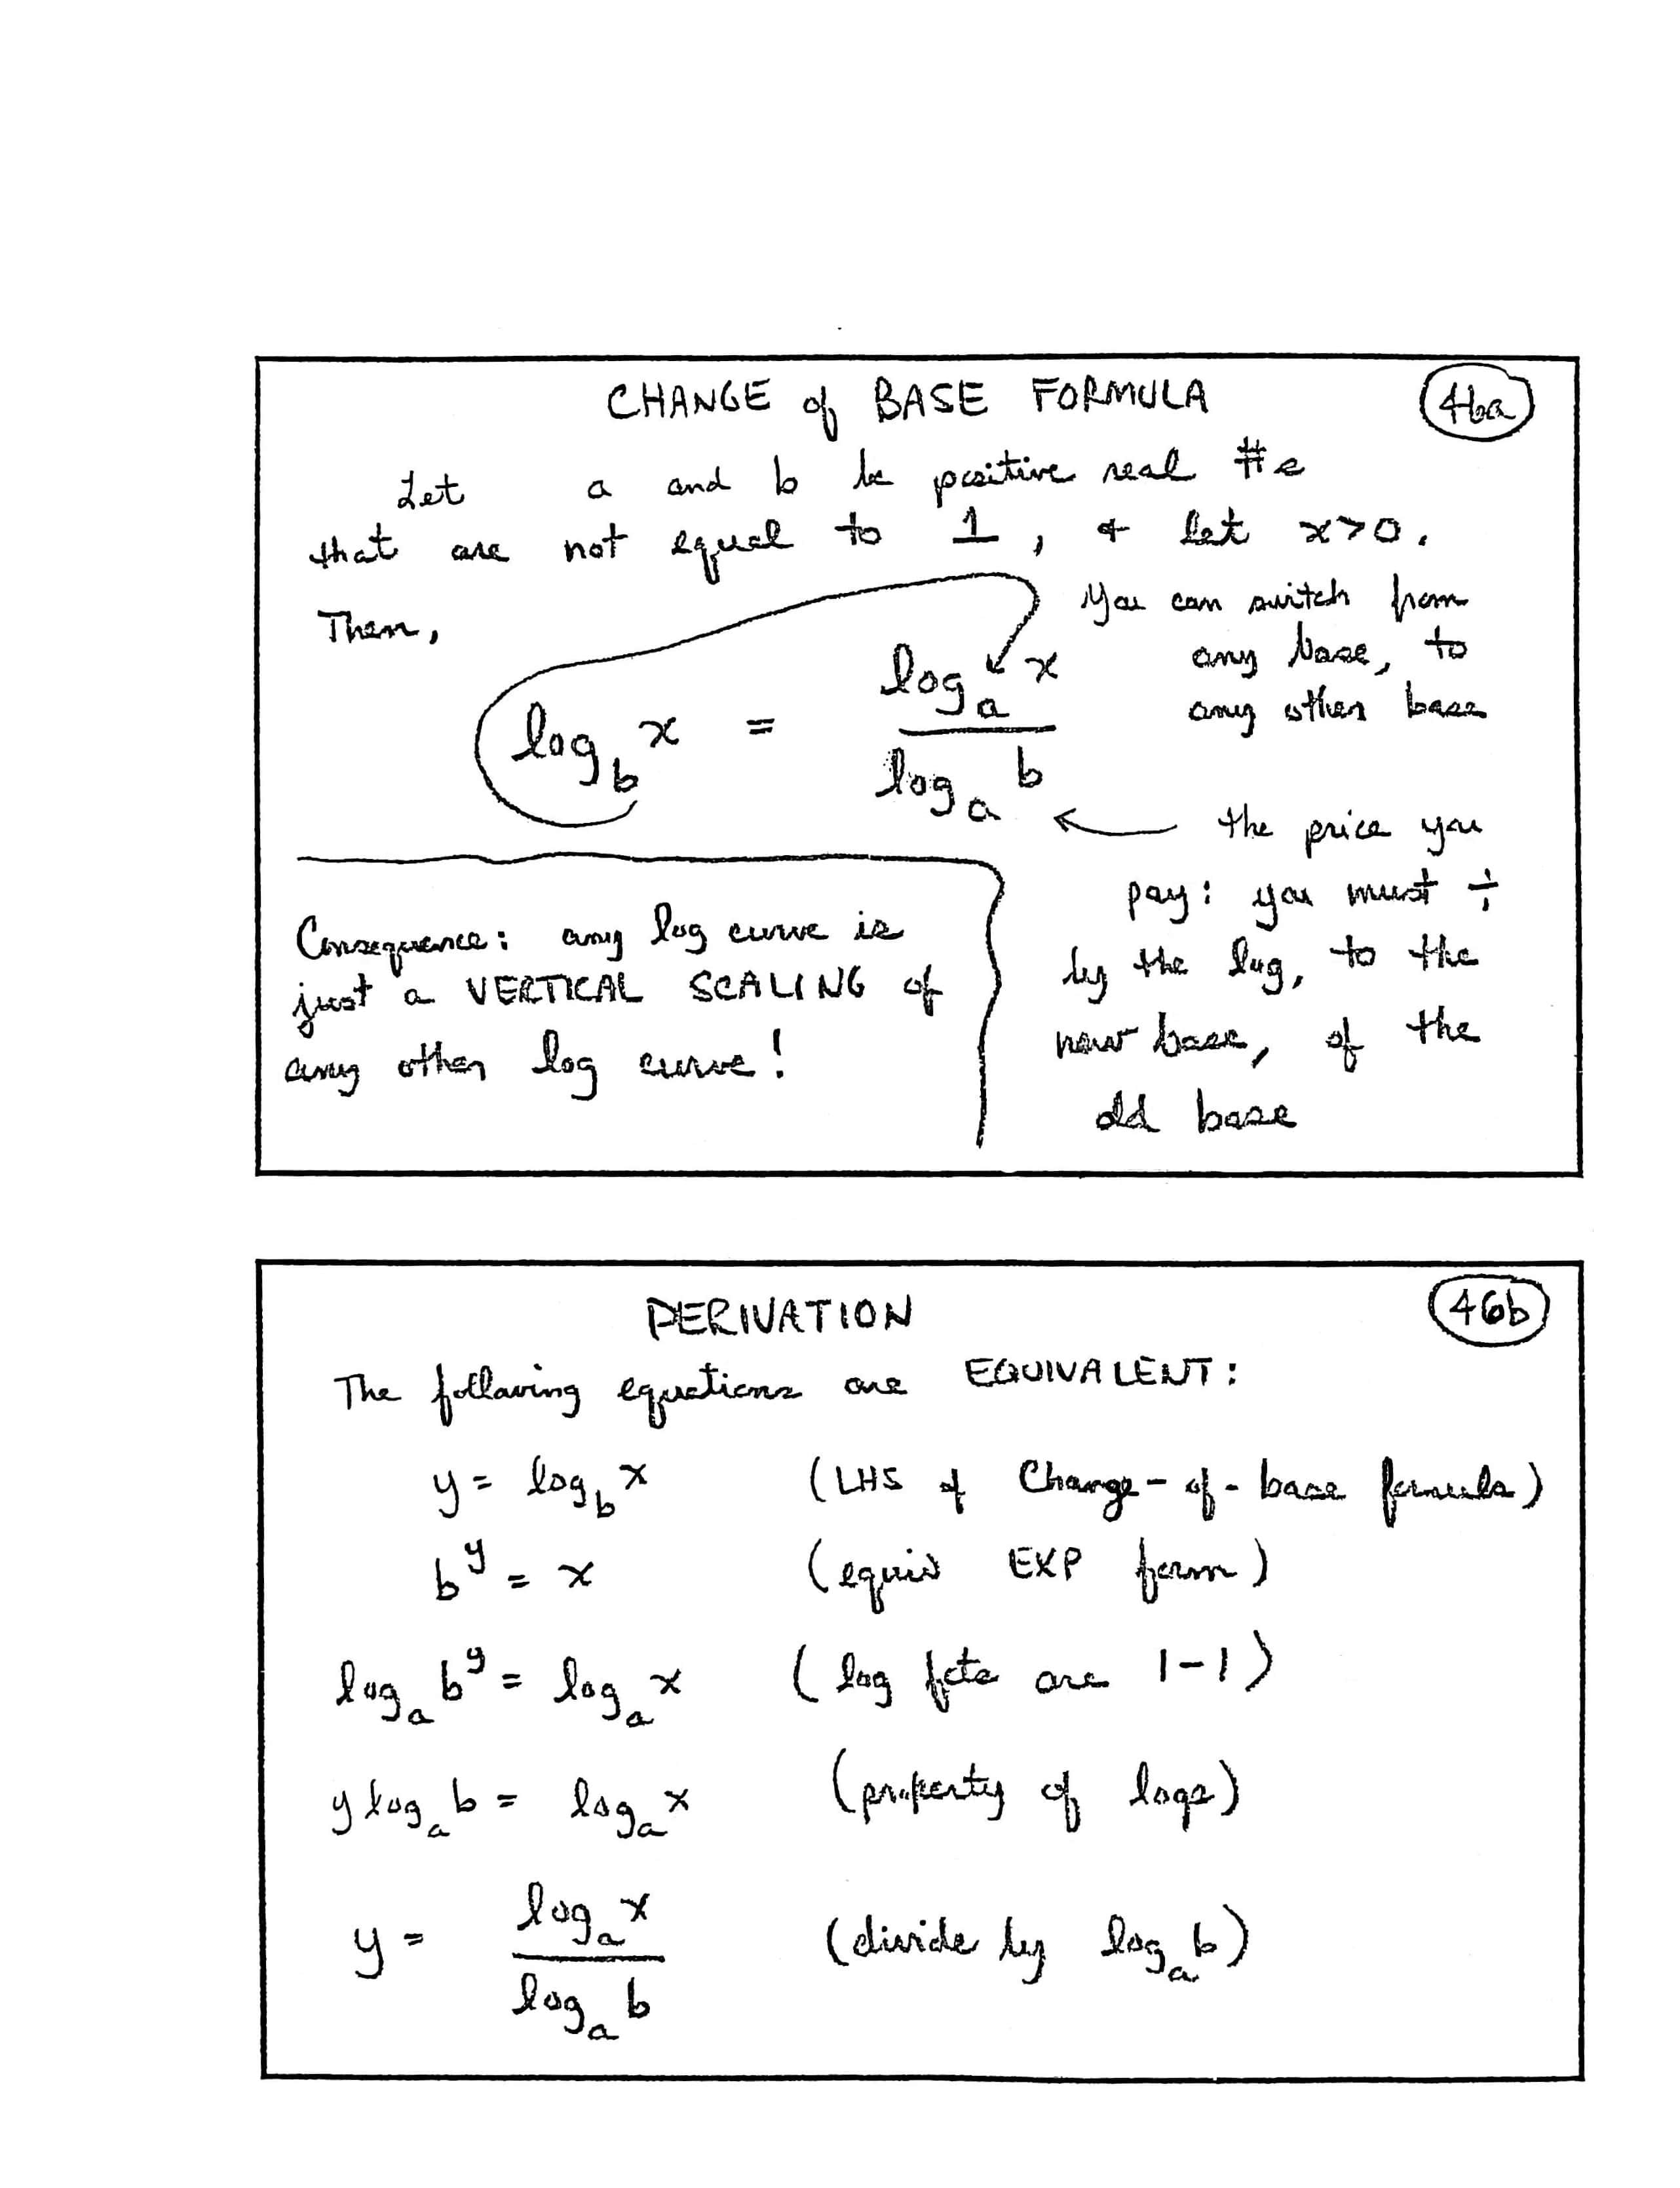 CHANGE of BASE FORMULA
46a
Let a and b be positive real #s
that are not equal to 1, & let x>0.
Then,
log_b x = log_a x / log_a b
You can switch from
any base, to
any other base
the price you
pay: you must ÷
by the log, to the
new base, of the
old base
Consequence: any log curve is
just a VERTICAL SCALING of
any other log curve!
DERIVATION
46b
The following equations are EQUIVALENT:
y = log_b x (LHS of Change-of-base formula)
b^y = x (equiv EXP form)
log_a b^y = log_a x (log fcts are 1-1)
y log_a b = log_a x (property of logs)
y = log_a x / log_a b (divide by log_a b)